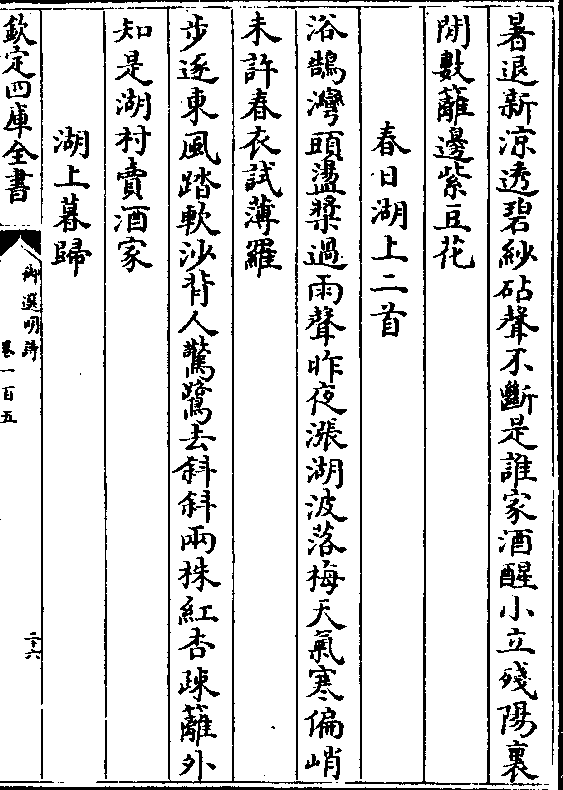 暑退新涼透碧紗砧聲不斷是誰家酒醒小立殘陽裏
閒數籬邊紫豆花
春日湖上二首
浴鵠灣頭盪槳過雨聲昨夜漲湖波落梅天氣寒偏峭
未許春衣試薄羅
步逐東風踏軟沙背人驚鷺去斜斜兩株紅杏疎籬外
知是湖村賣酒家
湖上暮歸
欽定四庫全書
御選明詩
卷一百五
二十六